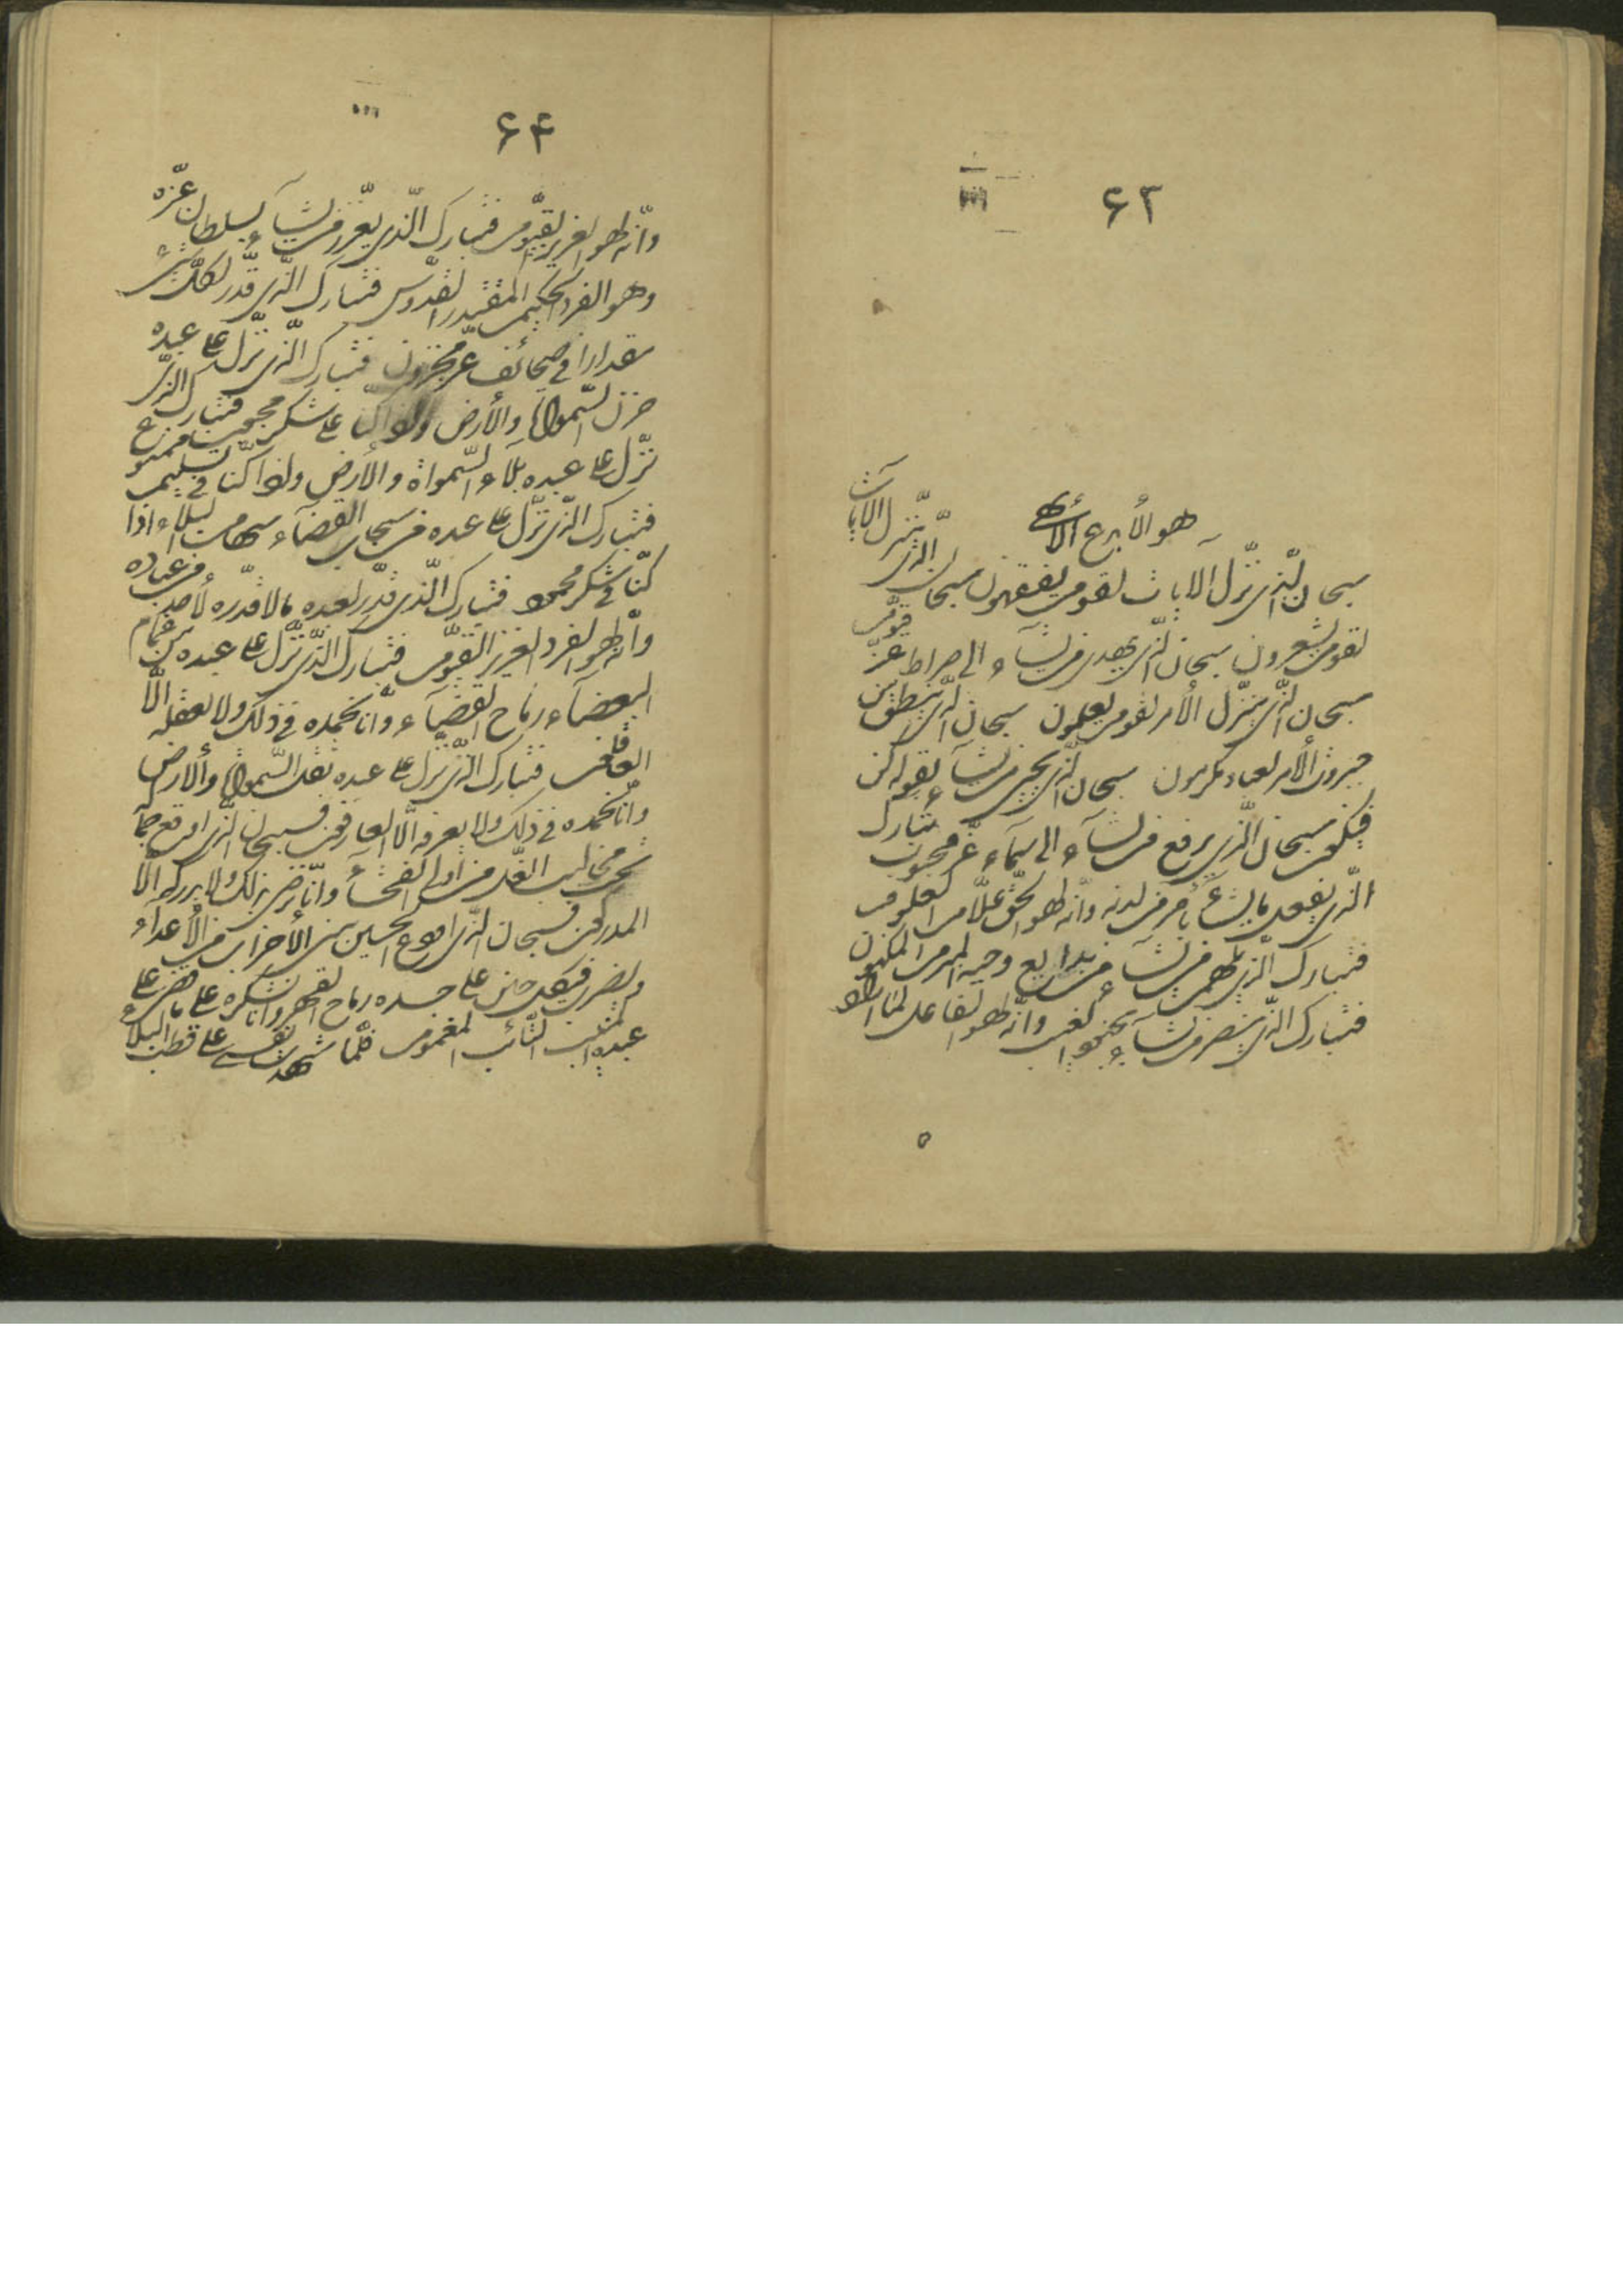 ۶۳
هو الأبدع الأبهى
سبحان الّذی نزّل الآیات لقوم یفقهون سبحان الّذی ینزّل الآیات
لقوم یشعرون سبحان الّذی یهدی من یشآء الی صراط عزّ قیّوم
سبحان الّذی ینزّل الأمر لقوم یعلمون سبحان الّذی ینطق من
جبروت الأمر لعباد مکرمون سبحان الّذی یحیی من یشآء بقوله کن
فیکون سبحان الّذی یرفع من یشآء الی سمآء عزّ محبوب فتبارک
الّذی یفعل ما یشآء بامر من لدنه وانّه لهو الحقّ علّام الغیوب
فتبارک الّذی یلهم من یشآء من بدایع وحیه المبرم المکنون
فتبارک الّذی ینصر من یشآء بجنود الغیب وانّه لهو الفاعل لما اراد
۶۴
وانّه لهو العزیز القیّوم فتبارک الّذی یعزّز من یشآء بسلطان عزّه
وهو الفرد الحکیم المقتدر القدّوس فتبارک الّذی قدّر لکلّ شئ
مقدارا فی صحائف عزّ مخزون فتبارک الّذی نزّل علی عبده
حزن السّموات والأرض واذا کنّا علی شکر محبوب فتبارک الّذی
نزّل علی عبده بلآء السّمواة والأرض واذا کنّا فی تسلیم ممنوع
فتبارک الّذی نزّل علی عبده من سحاب القضآء سهام البلآء واذا
کنّا فی شکر محمود فتبارک الّذی قدّر لعبده مالا قدّره لأحد من عباده
وانّه لهو الفرد العزیز القیّوم فتبارک الّذی نزّل علی عبده من غمام
البغضآء رماح القضآء وانّا نحمده فی ذلک ولا یعقله الّا
العاقلون فتبارک الّذی نزّل علی عبده ثقل السّموات والأرض
وانّا نحمده فی ذلک ولا یعرفه الّا العارفون فسبحان الّذی اودع جماله
تحت مخالیب الغلّ من اولی الفحشآء وانّا نرضی بذلک ولا یدرکه الّا
المدرکون فسبحان الّذی اودع الحسین بین الأحزاب من الأعدآء
ویضرب فی کلّ حین علی جسده رماح القهر وانّا نشکره علی ما قضی علی
عبده المنیب التّائب المغموم فلمّا شهدت نفسی علی قطب البلآء